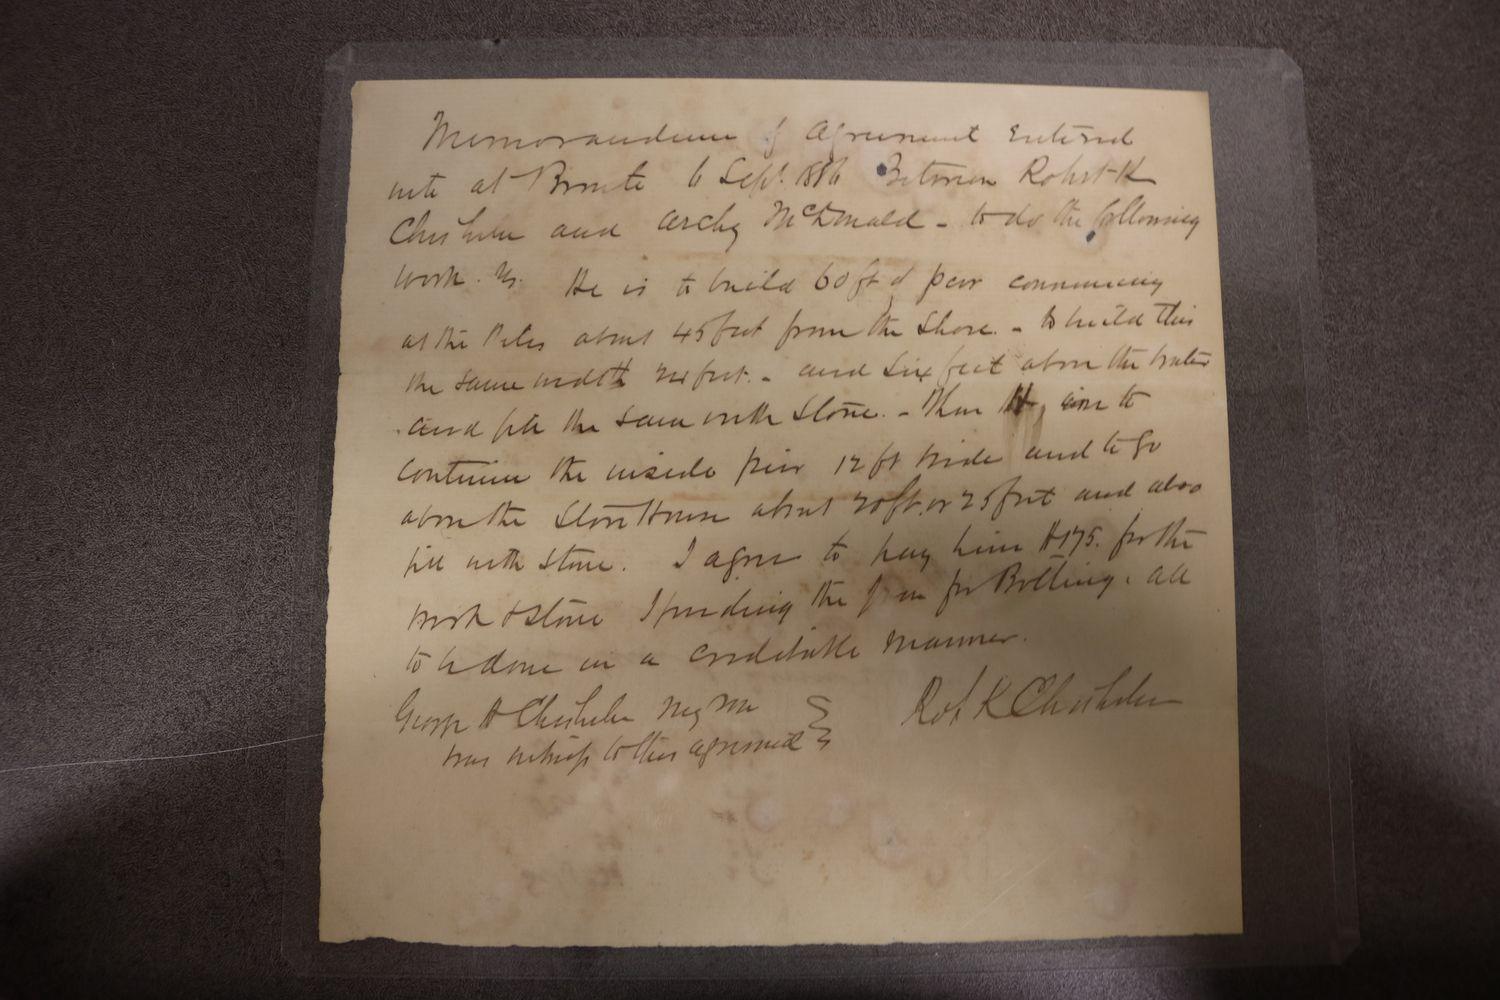 Memorandum of Agreement Entered
into at Bronte 6 Sept. 1886 Between Robert K
Chisholm and Archy McDonald - to do the following
work. Viz. He is to build 60 ft of pier commencing
at the Piles about 45 feet from the Shore. - to build this
the same width 24 feet. - and Six feet above the water
and fill the same with Stone. - Then to
continue the inside pier 12 ft wide and to go
above the Store House about 20 ft. or 25 feet and also
fill with Stone. I agree to pay him $175. for the
work & Stone I finding the Iron for Bolting. all
to be done in a creditable manner.
George H Chisholm
was witness to this agreement
Rob K Chisholm